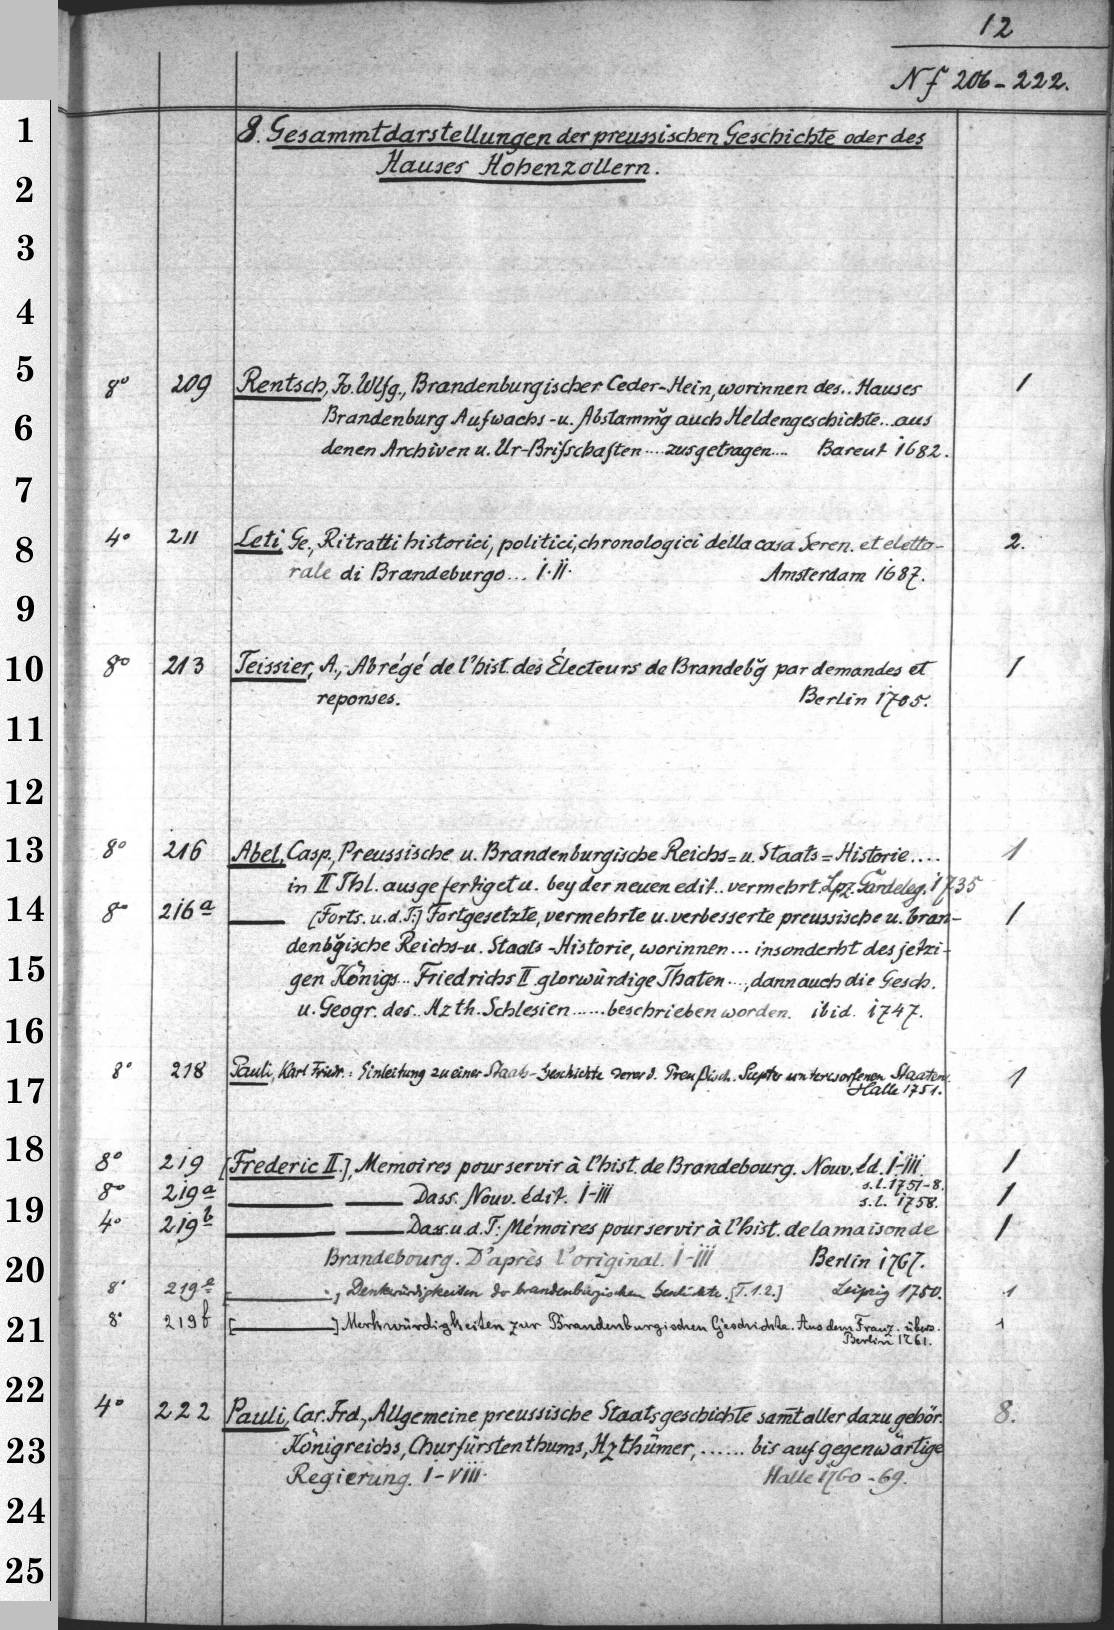 12
Nf 206-222.
8. Gesammtdarstellungen der preussischen Geschichte oder des
Hauses Hohenzollern.
8° 209 Rentsch, Jo. Wlfg., Brandenburgischer Ceder-Hein, worinnen des.. Hauses 1
Brandenburg Aufwachs- u. Abstammg auch Heldengeschichte... aus
denen Archiven u. Ur-Brifschaften .... zusgetragen.... Bareut 1682.
4° 211 Leti, Ge., Ritratti historici, politici, chronologici della casa Seren. et eletto- 2.
rale di Brandeburgo... I.II. Amsterdam 1687.
8° 213 Teissier, A., Abrégé de l'hist. des Électeurs de Brandebg par demandes et 1
reponses. Berlin 1705.
8° 216 Abel, Casp., Preussische u. Brandenburgische Reichs= u. Staats=Historie.... 1
in II Thl. ausgefertiget u. bey der neuen edit.. vermehrt. Lpz. Gardeleg. 1735
8° 216a ___ [Forts. u. d. T:] Fortgesetzte, vermehrte u. verbesserte preussische u. bran- 1
denbgische Reichs- u. Staats-Historie, worinnen... insonderht des jetzi-
gen Königs... Friedrichs II glorwürdige Thaten...., dann auch die Gesch.
u. Geogr. des.. Hzth. Schlesien...... beschrieben worden. ibid. 1747.
8° 218 Pauli, Karl Friedr.: Einleitung zu einer Staats-Geschichte derer d. Preußisch. Scepter unterworfenen Staaten. 1
Halle 1751.
8° 219 [Frederic II.], Memoires pour servir à l'hist. de Brandebourg. Nouv. éd. I-III. 1
s.l. 1757-8.
8° 219a ___ ___ Dass. Nouv. édit. I-III s.l. 1758. 1
4° 219b ___ ___ Dass. u. d. T: Mémoires pour servir à l'hist. de la maison de 1
Brandebourg. D'après l'original. I-III Berlin 1767.
8° 219e [___., Denkwürdigkeiten der brandenburgischen Geschichte. [T. 1.2.] Leipzig 1750. 1
8° 219f [___] Merkwürdigkeiten zur Brandenburgischen Geschichte. Aus dem Franz. übers. 1
Berlin 1761.
4° 222 Pauli, Car. Frd., Allgemeine preussische Staatsgeschichte samt aller dazu gehör. 8.
Königreichs, Churfürstenthums, Hzthümer, ...... bis auf gegenwärtige
Regierung. I-VIII. Halle 1760-69.
1
2
3
4
5
6
7
8
9
10
11
12
13
14
15
16
17
18
19
20
21
22
23
24
25